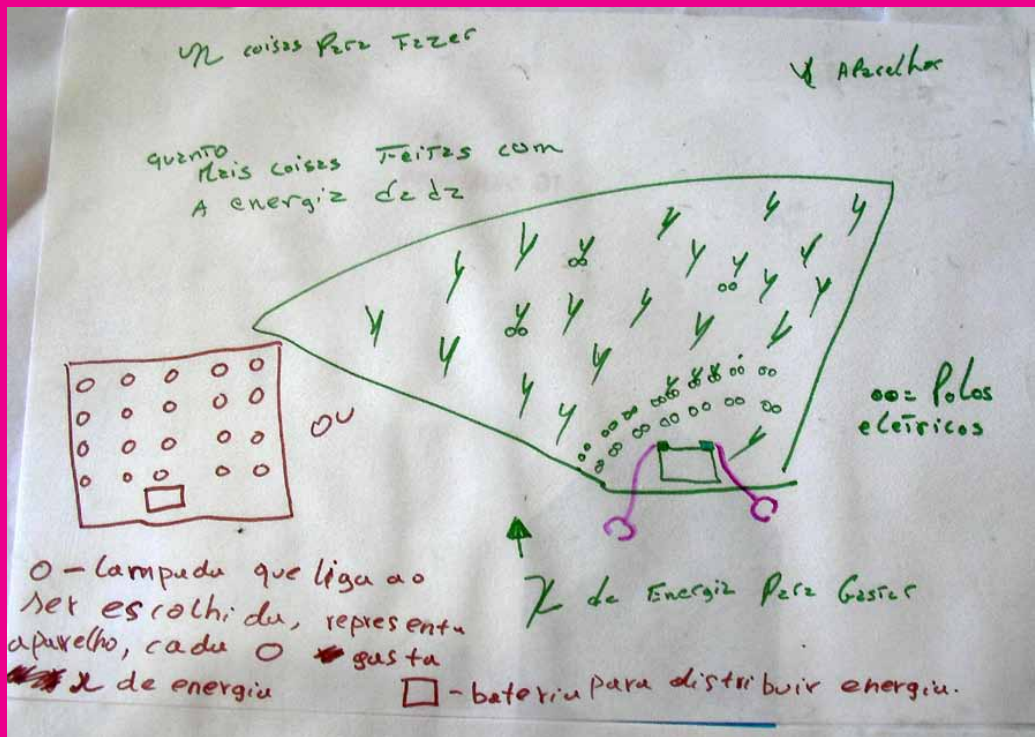 n coisas Para Fazer
y Aparelhos
quanto
Mais coisas Feitas com
A energia dada
ou
oo= Polos
eletricos
x de Energia Para Gastar
O - lampada que liga ao
ser escolhida, representa
aparelho, cada O gasta
x de energia
□ - bateria para distribuir energia.